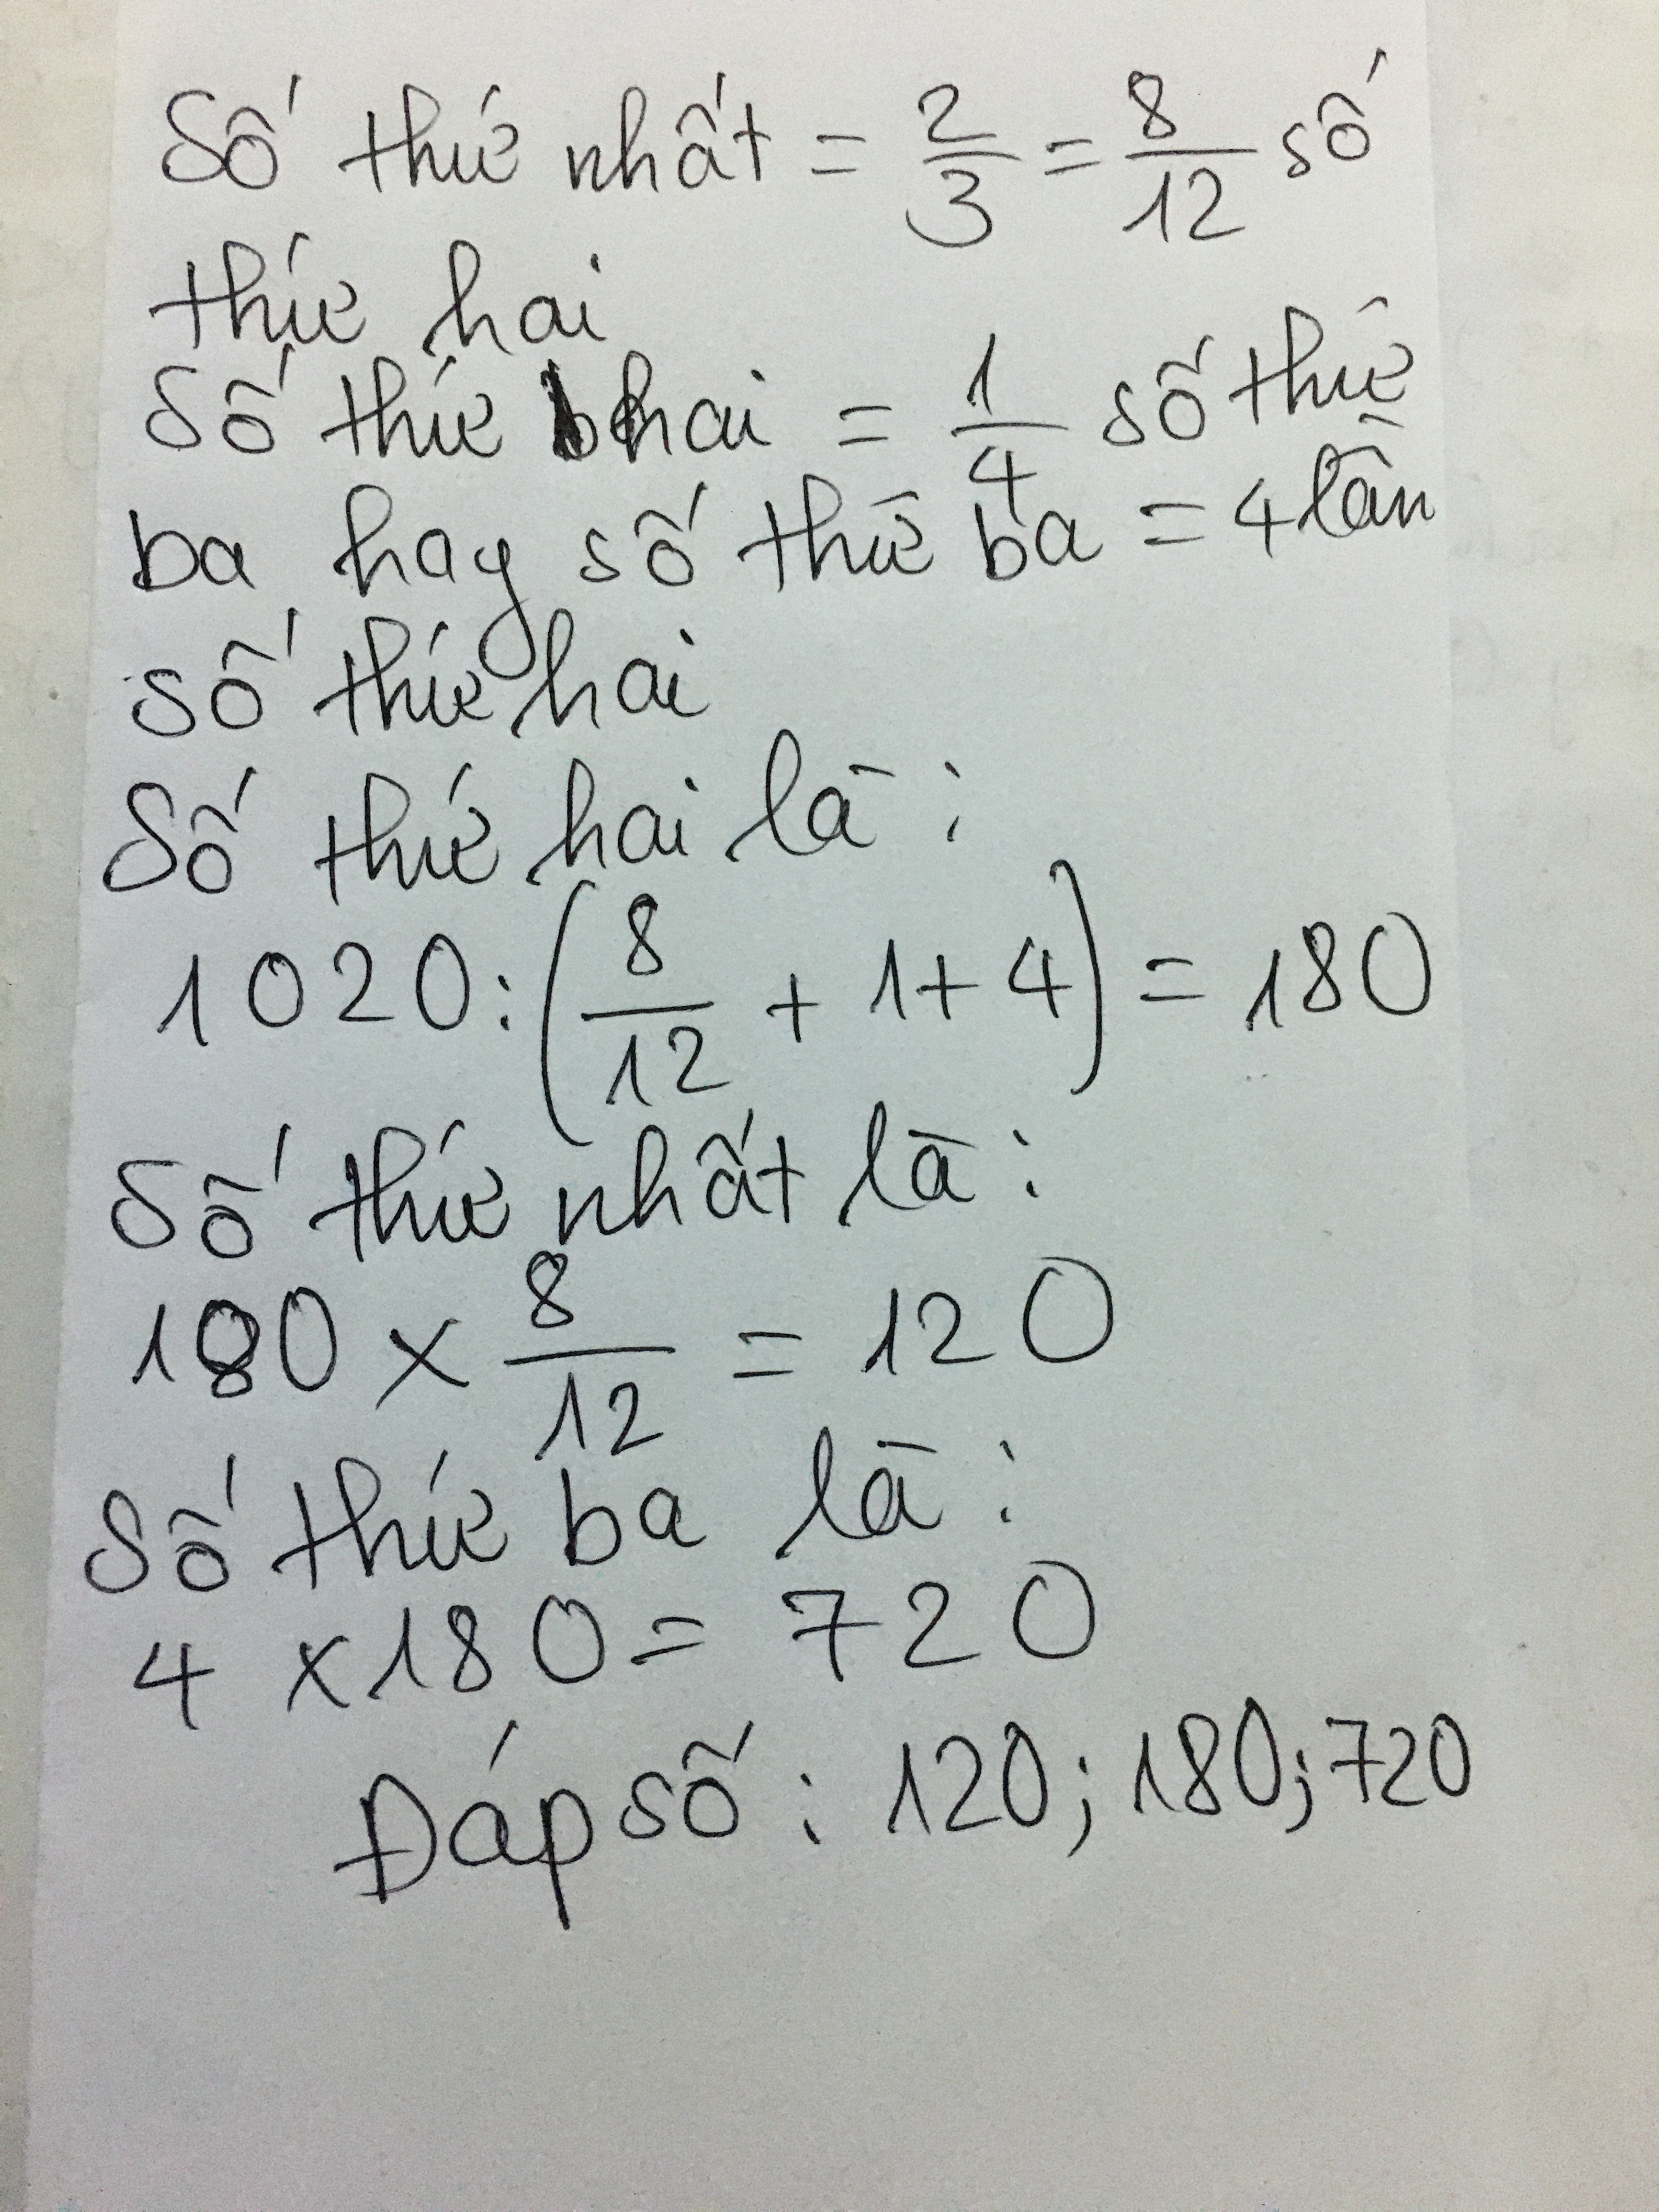 Số thứ nhất = 2/3 = 8/12 số
thứ hai
Số thứ hai = 1/4 số thứ
ba hay số thứ ba = 4 lần
số thứ hai
Số thứ hai là :
1020 : (8/12 + 1 + 4) = 180
Số thứ nhất là :
180 × 8/12 = 120
Số thứ ba là :
4 × 180 = 720
Đáp số : 120 ; 180 ; 720